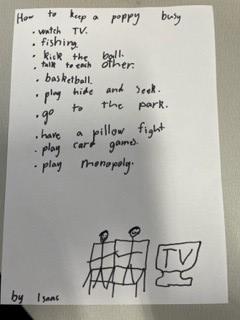 How to keep a poppy busy
• watch TV.
• fishing.
• kick the ball.
• talk to each other.
• basketball.
• play hide and seek.
• go to the park.
• have a pillow fight
• play card games.
• play monopoly.
TV
by Isaac